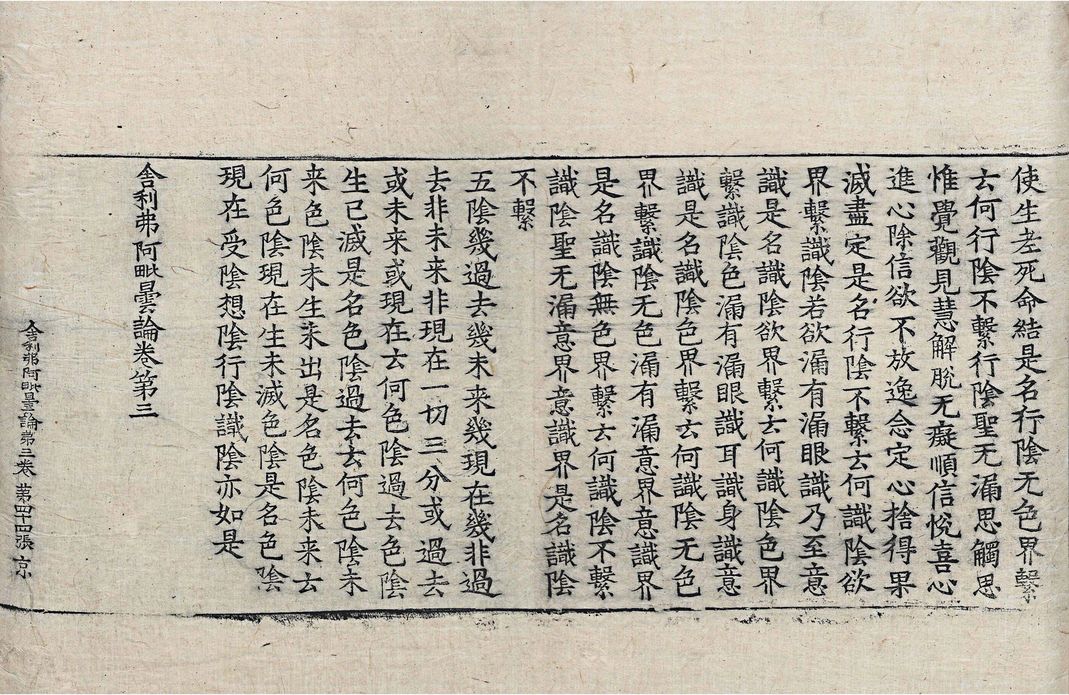 使生老死命結是名行陰无色界繫
云何行陰不繫行陰聖无漏思觸思
惟覺觀見慧解脫无癡順信悅喜心
進心除信欲不放逸念定心捨得果
滅盡定是名行陰不繫云何識陰欲
界繫識陰若欲漏有漏眼識乃至意
識是名識陰欲界繫云何識陰色界
繫識陰色漏有漏眼識耳識身識意
識是名識陰色界繫云何識陰无色
界繫識陰无色漏有漏意界意識界
是名識陰無色界繫云何識陰不繫
識陰聖无漏意界意識界是名識陰
不繫
五陰幾過去幾未来幾現在幾非過
去非未来非現在一切三分或過去
或未来或現在云何色陰過去色陰
生已滅是名色陰過去云何色陰未
来色陰未生未出是名色陰未来云
何色陰現在生未滅色陰是名色陰
現在受陰想陰行陰識陰亦如是
舎利弗阿毗曇論卷第三
舎利弗阿毗曇論第三卷 第四十四張 京